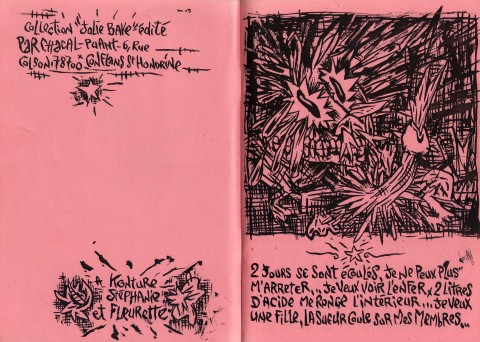 COLLECTION "JOLIE BAVE" éDITÉ
PAR CHACAL-PUANT-6, RUE
COLSON 78700 CONFLANS ST HONORINE
A KONTURE
STÉPHANIE
et FLEURETTE
2 JOURS SE SONT ÉCOULÉS, JE NE PEUX PLUS
M'ARRETER... JE VEUX VOIR L'ENFER x 2 LITRES
D'ACIDE ME RONGE L'INTÉRIEUR... JE VEUX
UNE FILLE, LA SUEUR COULE SUR MES MEMBRES...